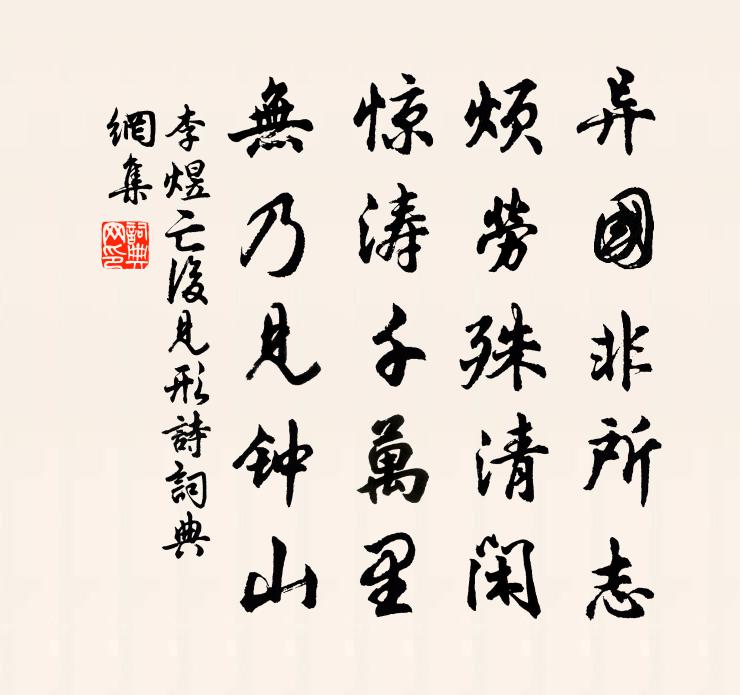 异國非所志
煩勞殊清閑
惊涛千萬里
無乃見钟山
李煜亡後見形詩詞典
網集
詞典网印